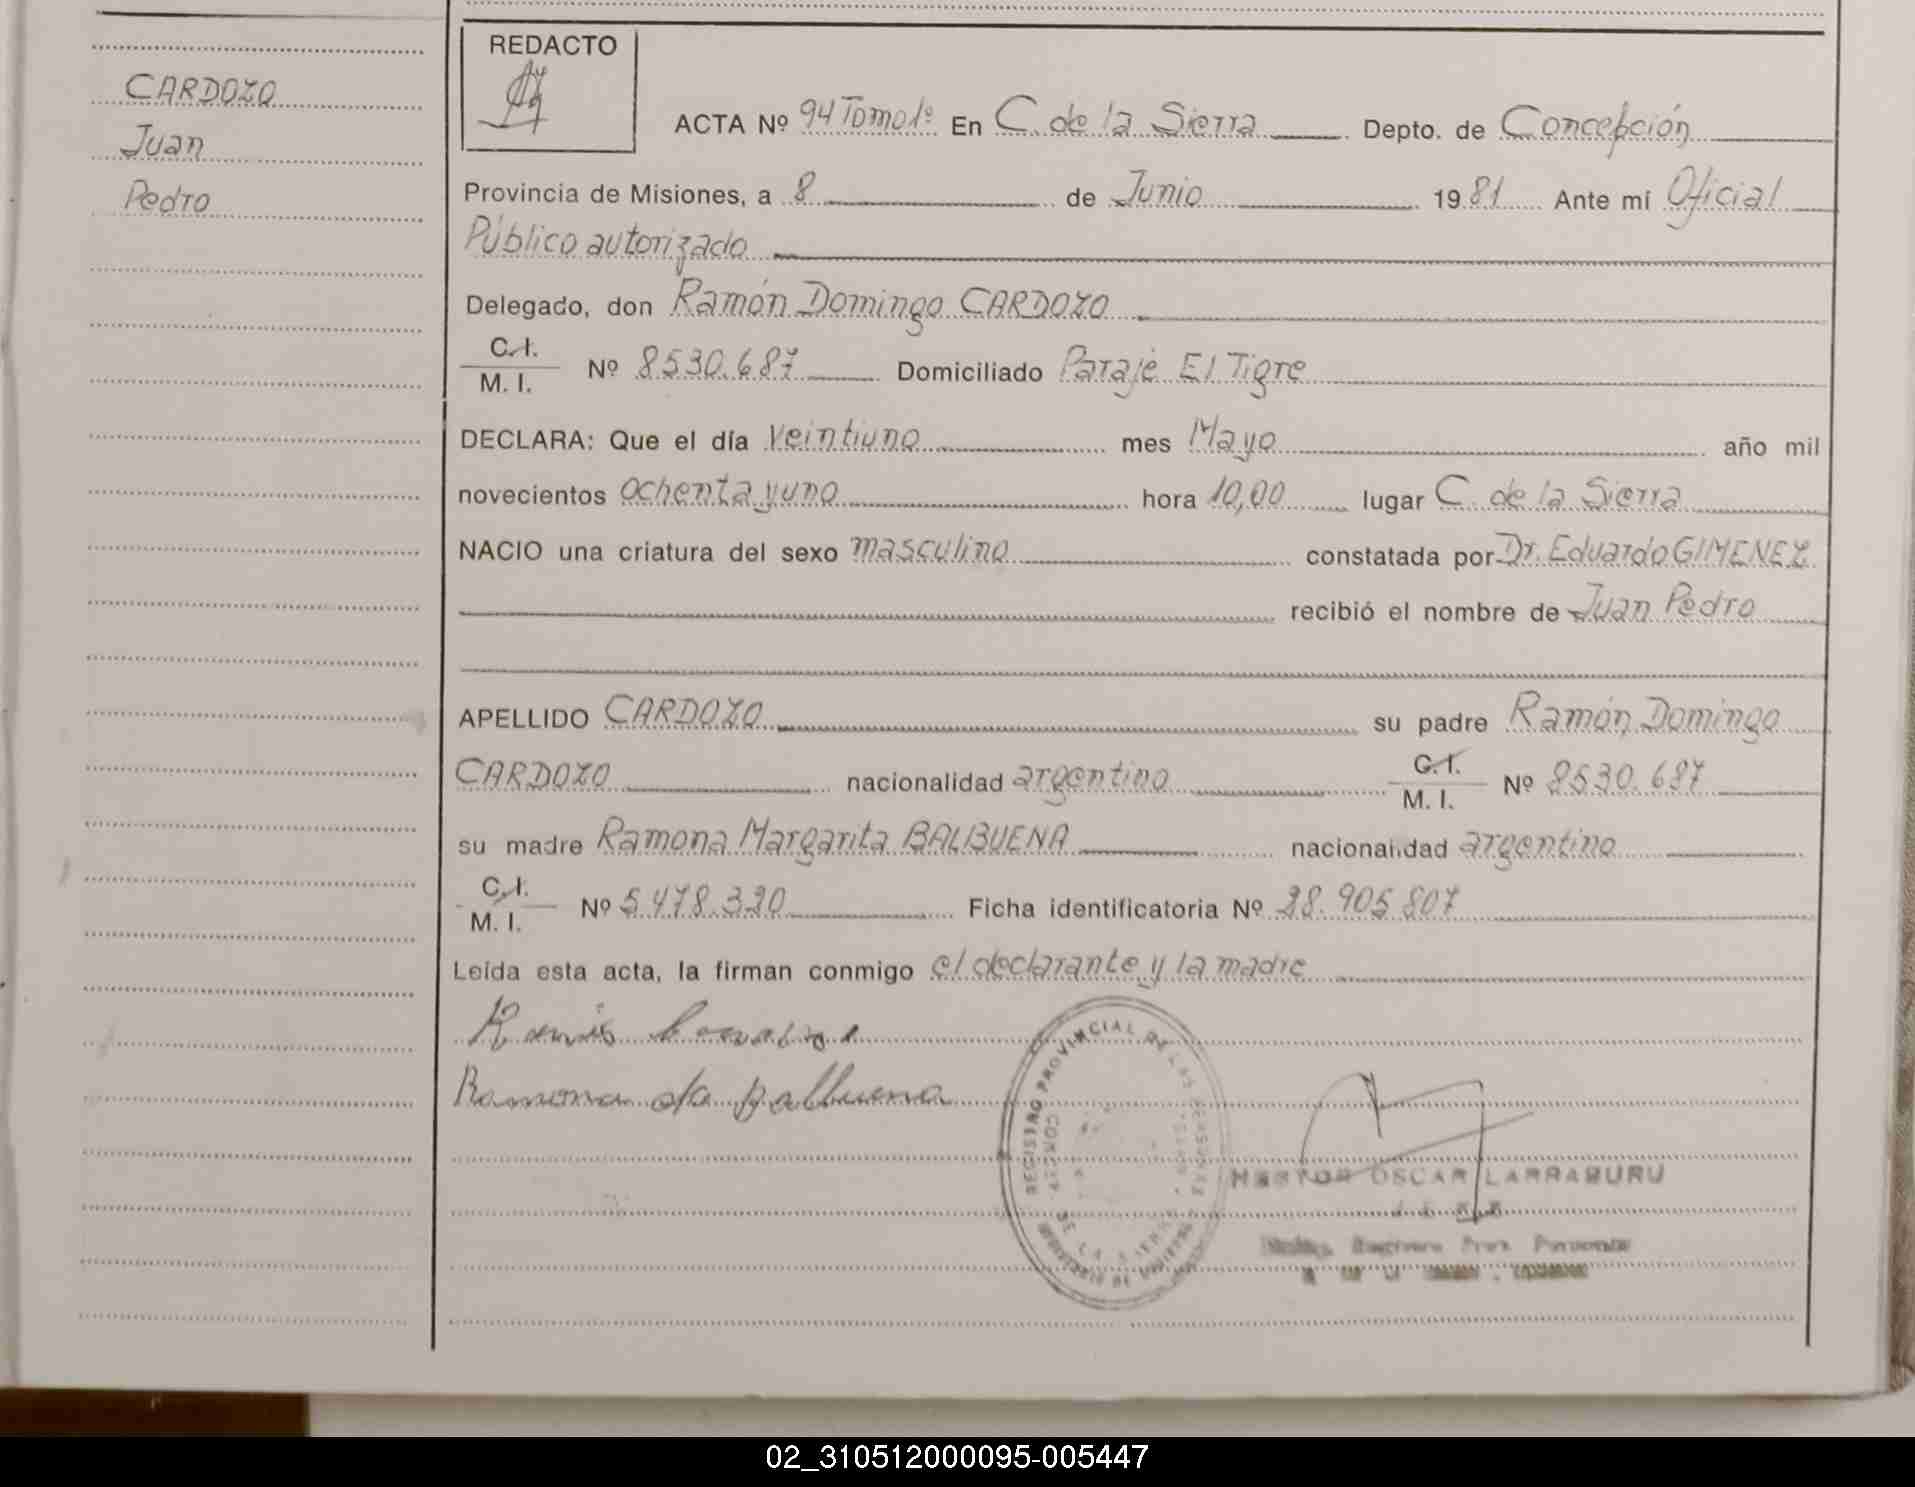 CARDOZO
Juan
Pedro
REDACTO
ACTA Nº 94 Tomo 1º En C. de la Sierra Depto. de Concepción
Provincia de Misiones, a 8 de Junio 1981 Ante mí Oficial
Público autorizado
Delegado, don Ramón Domingo CARDOZO
C.I.
M. I. Nº 8530.687 Domiciliado Paraje El Tigre
DECLARA: Que el día veintiuno mes Mayo año mil
novecientos ochenta y uno hora 10,00 lugar C. de la Sierra
NACIO una criatura del sexo masculino constatada por Dr. Eduardo GIMENEZ
recibió el nombre de Juan Pedro
APELLIDO CARDOZO su padre Ramón Domingo
CARDOZO nacionalidad argentino C.I.
M. I. Nº 8530.687
su madre Ramona Margarita BALBUENA nacionalidad argentino
C.I.
M. I. Nº 5.478.330 Ficha identificatoria Nº 28.905.807
Leída esta acta, la firman conmigo el declarante y la madre
Ramona de balbuena
REGISTRO PROVINCIAL DE LAS
DE LA SIERRA
HESTOR OSCAR LARRABURU
02_310512000095-005447